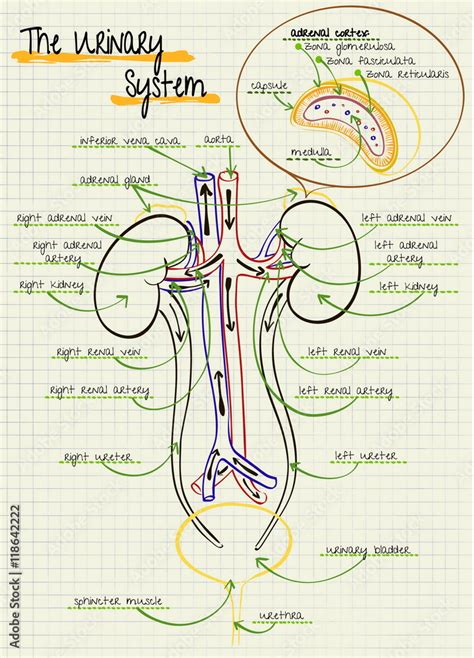 The Urinary
System
adrenal cortex:
zona glomerulosa
zona fasciculata
zona reticularis
capsule
medulla
inferior vena cava
aorta
adrenal gland
right adrenal vein
left adrenal vein
right adrenal
artery
left adrenal
artery
right kidney
left kidney
right renal vein
left renal vein
right renal artery
left renal artery
right ureter
left ureter
urinary bladder
sphincter muscle
urethra
Adobe Stock | #118642222